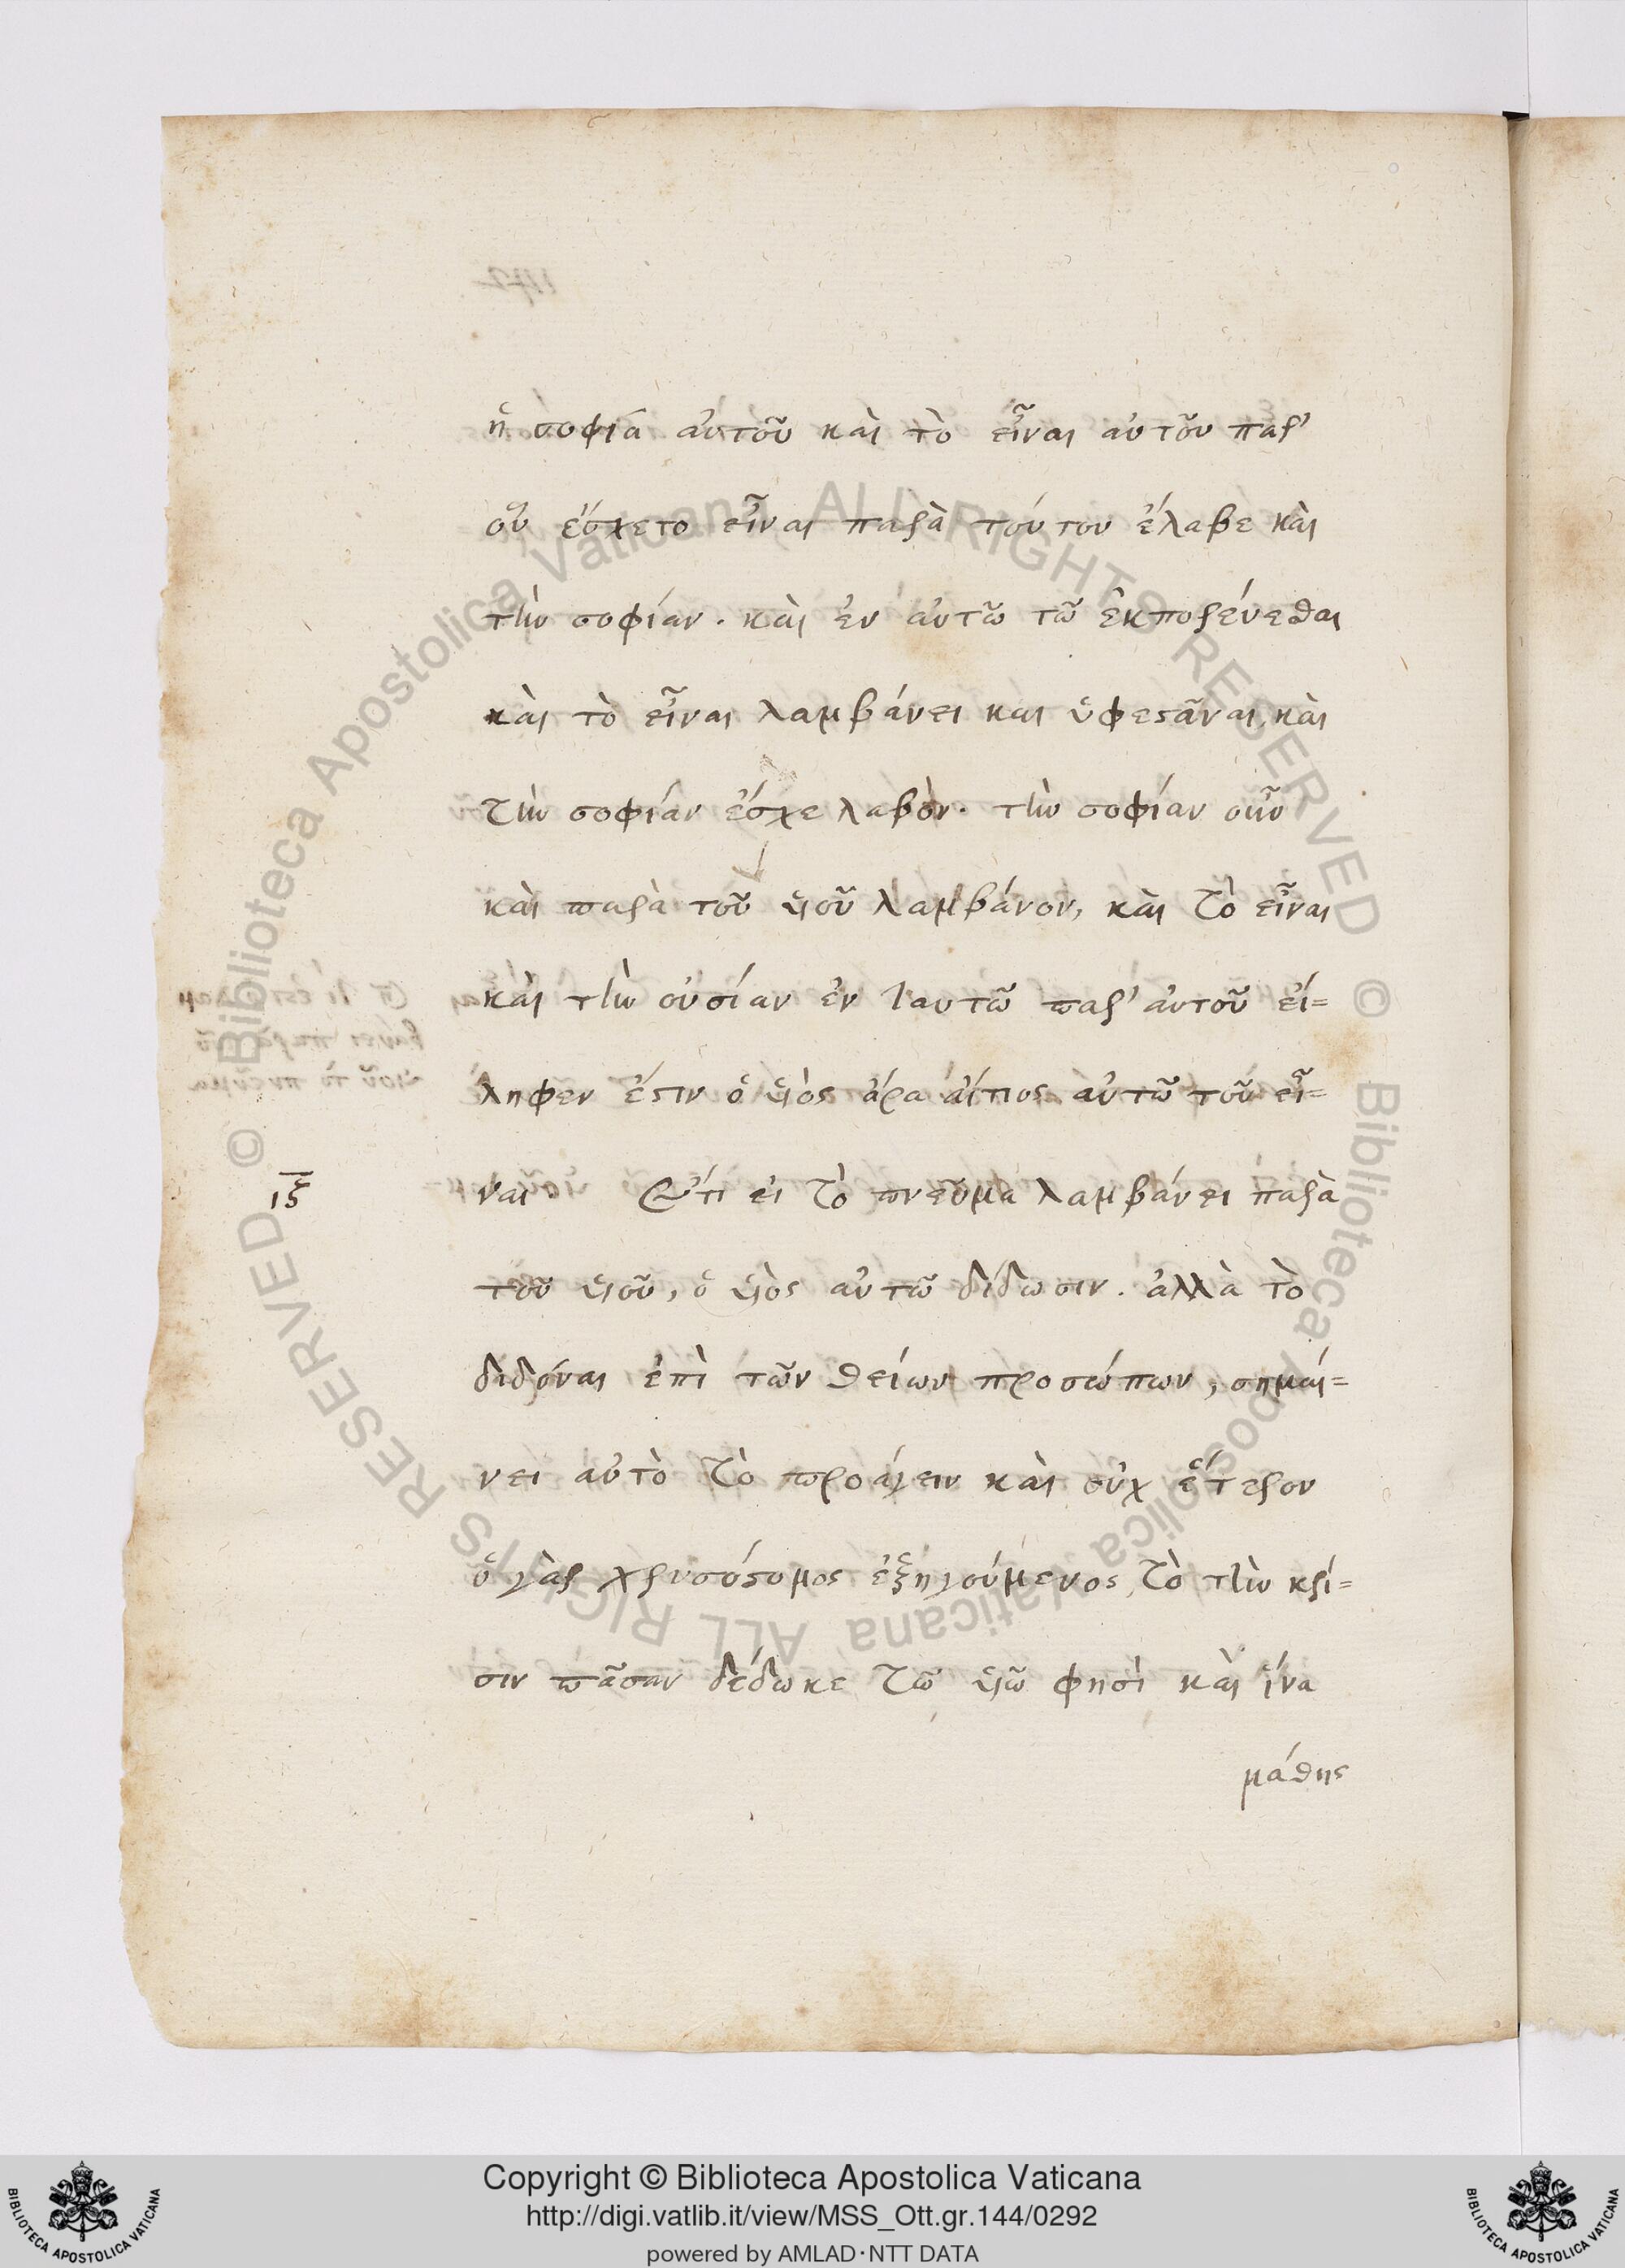 ἡ σοφία αὐτοῦ καὶ τὸ εἶναι αὐτοῦ παρ'
οὗ ἔσχετο εἶναι παρὰ τούτου ἔλαβε καὶ
τὴν σοφίαν. καὶ ἐν αὐτῶ τῶ ἐκπορεύεσθαι
καὶ τὸ εἶναι λαμβάνει καὶ ὑφεστᾶναι, καὶ
τὴν σοφίαν ἔσχε λαβὸν. τὴν σοφίαν οὖν
καὶ παρὰ τοῦ υἱοῦ λαμβάνον, καὶ τὸ εἶναι
καὶ τὴν οὐσίαν ἐν ταυτῶ παρ' αὐτοῦ εἴ=
ληφεν ἔστιν ὁ υἱὸς ἄρα αἴτιος αὐτῶ τοῦ εἶ=
ιξ
ναι Ἔτι εἰ τὸ πνεῦμα λαμβάνει παρὰ
τοῦ υἱοῦ, ὁ υἱὸς αὐτῶ δίδωσιν. ἀλλὰ τὸ
διδόναι ἐπὶ τῶν θείων προσώπων, σημαί=
νει αὐτὸ τὸ προάγειν καὶ οὐχ ἕτερον
ὁ γὰρ χρυσόστομος ἐξηγούμενος τὸ τὴν κρί=
σιν πᾶσαν δέδωκε τῶ υἱῶ φησὶ καὶ ἵνα
μάθης
Copyright © Biblioteca Apostolica Vaticana
http://digi.vatlib.it/view/MSS_Ott.gr.144/0292
powered by AMLAD·NTT DATA
BIBLIOTECA APOSTOLICA VATICANA
BIBLIOTECA APOSTOLICA VATICANA
© Biblioteca Apostolica Vaticana ALL RIGHTS RESERVED
© Biblioteca Apostolica Vaticana ALL RIGHTS RESERVED